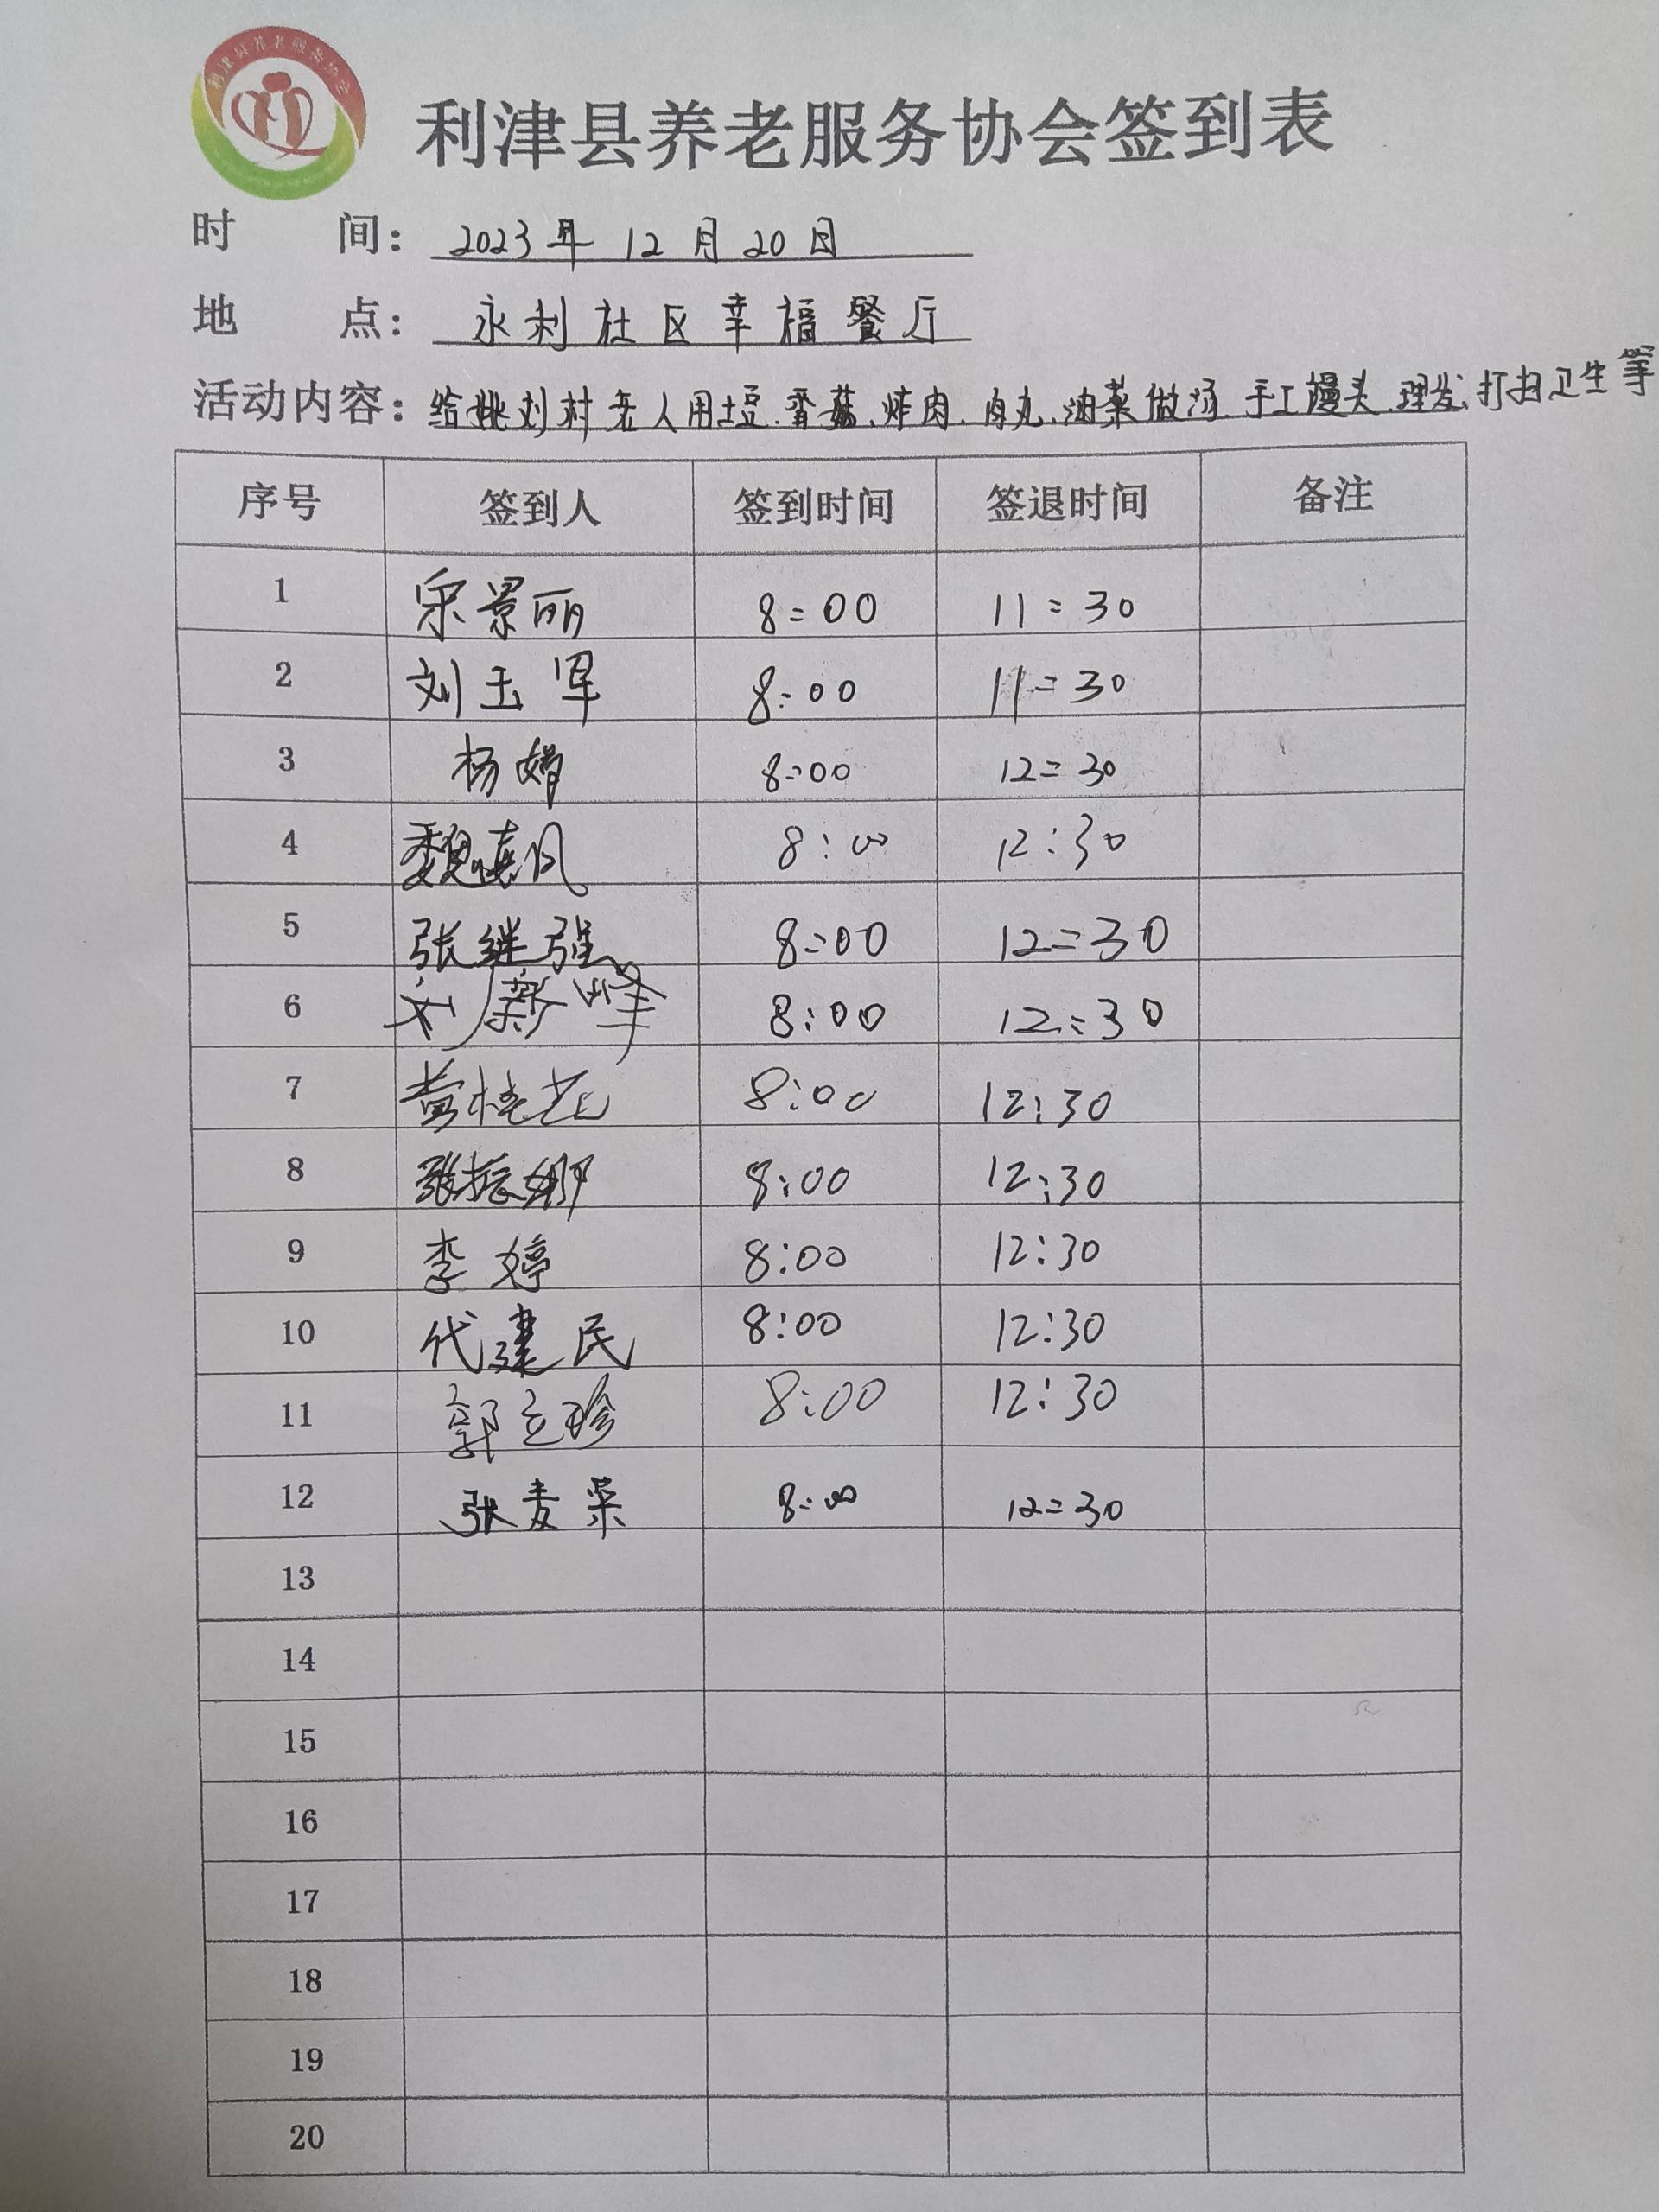 利津县养老服务协会
利津县养老服务协会签到表
时 间：2023年 12月20日
地 点：永利社区幸福餐厅
活动内容：给姚刘村老人用土豆、香菇、炸肉、肉丸、油菜做汤、手工馒头、理发、打扫卫生等
序号 签到人 签到时间 签退时间 备注
1 宋景丽 8:00 11:30
2 刘玉军 8:00 11:30
3 杨娟 8:00 12:30
4 魏 8:00 12:30
5 张继强 8:00 12:30
6 刘新峰 8:00 12:30
7 黄桂花 8:00 12:30
8 张振娜 8:00 12:30
9 李婷 8:00 12:30
10 代建民 8:00 12:30
11 郭立珍 8:00 12:30
12 张麦菜 8:00 12:30
13
14
15
16
17
18
19
20